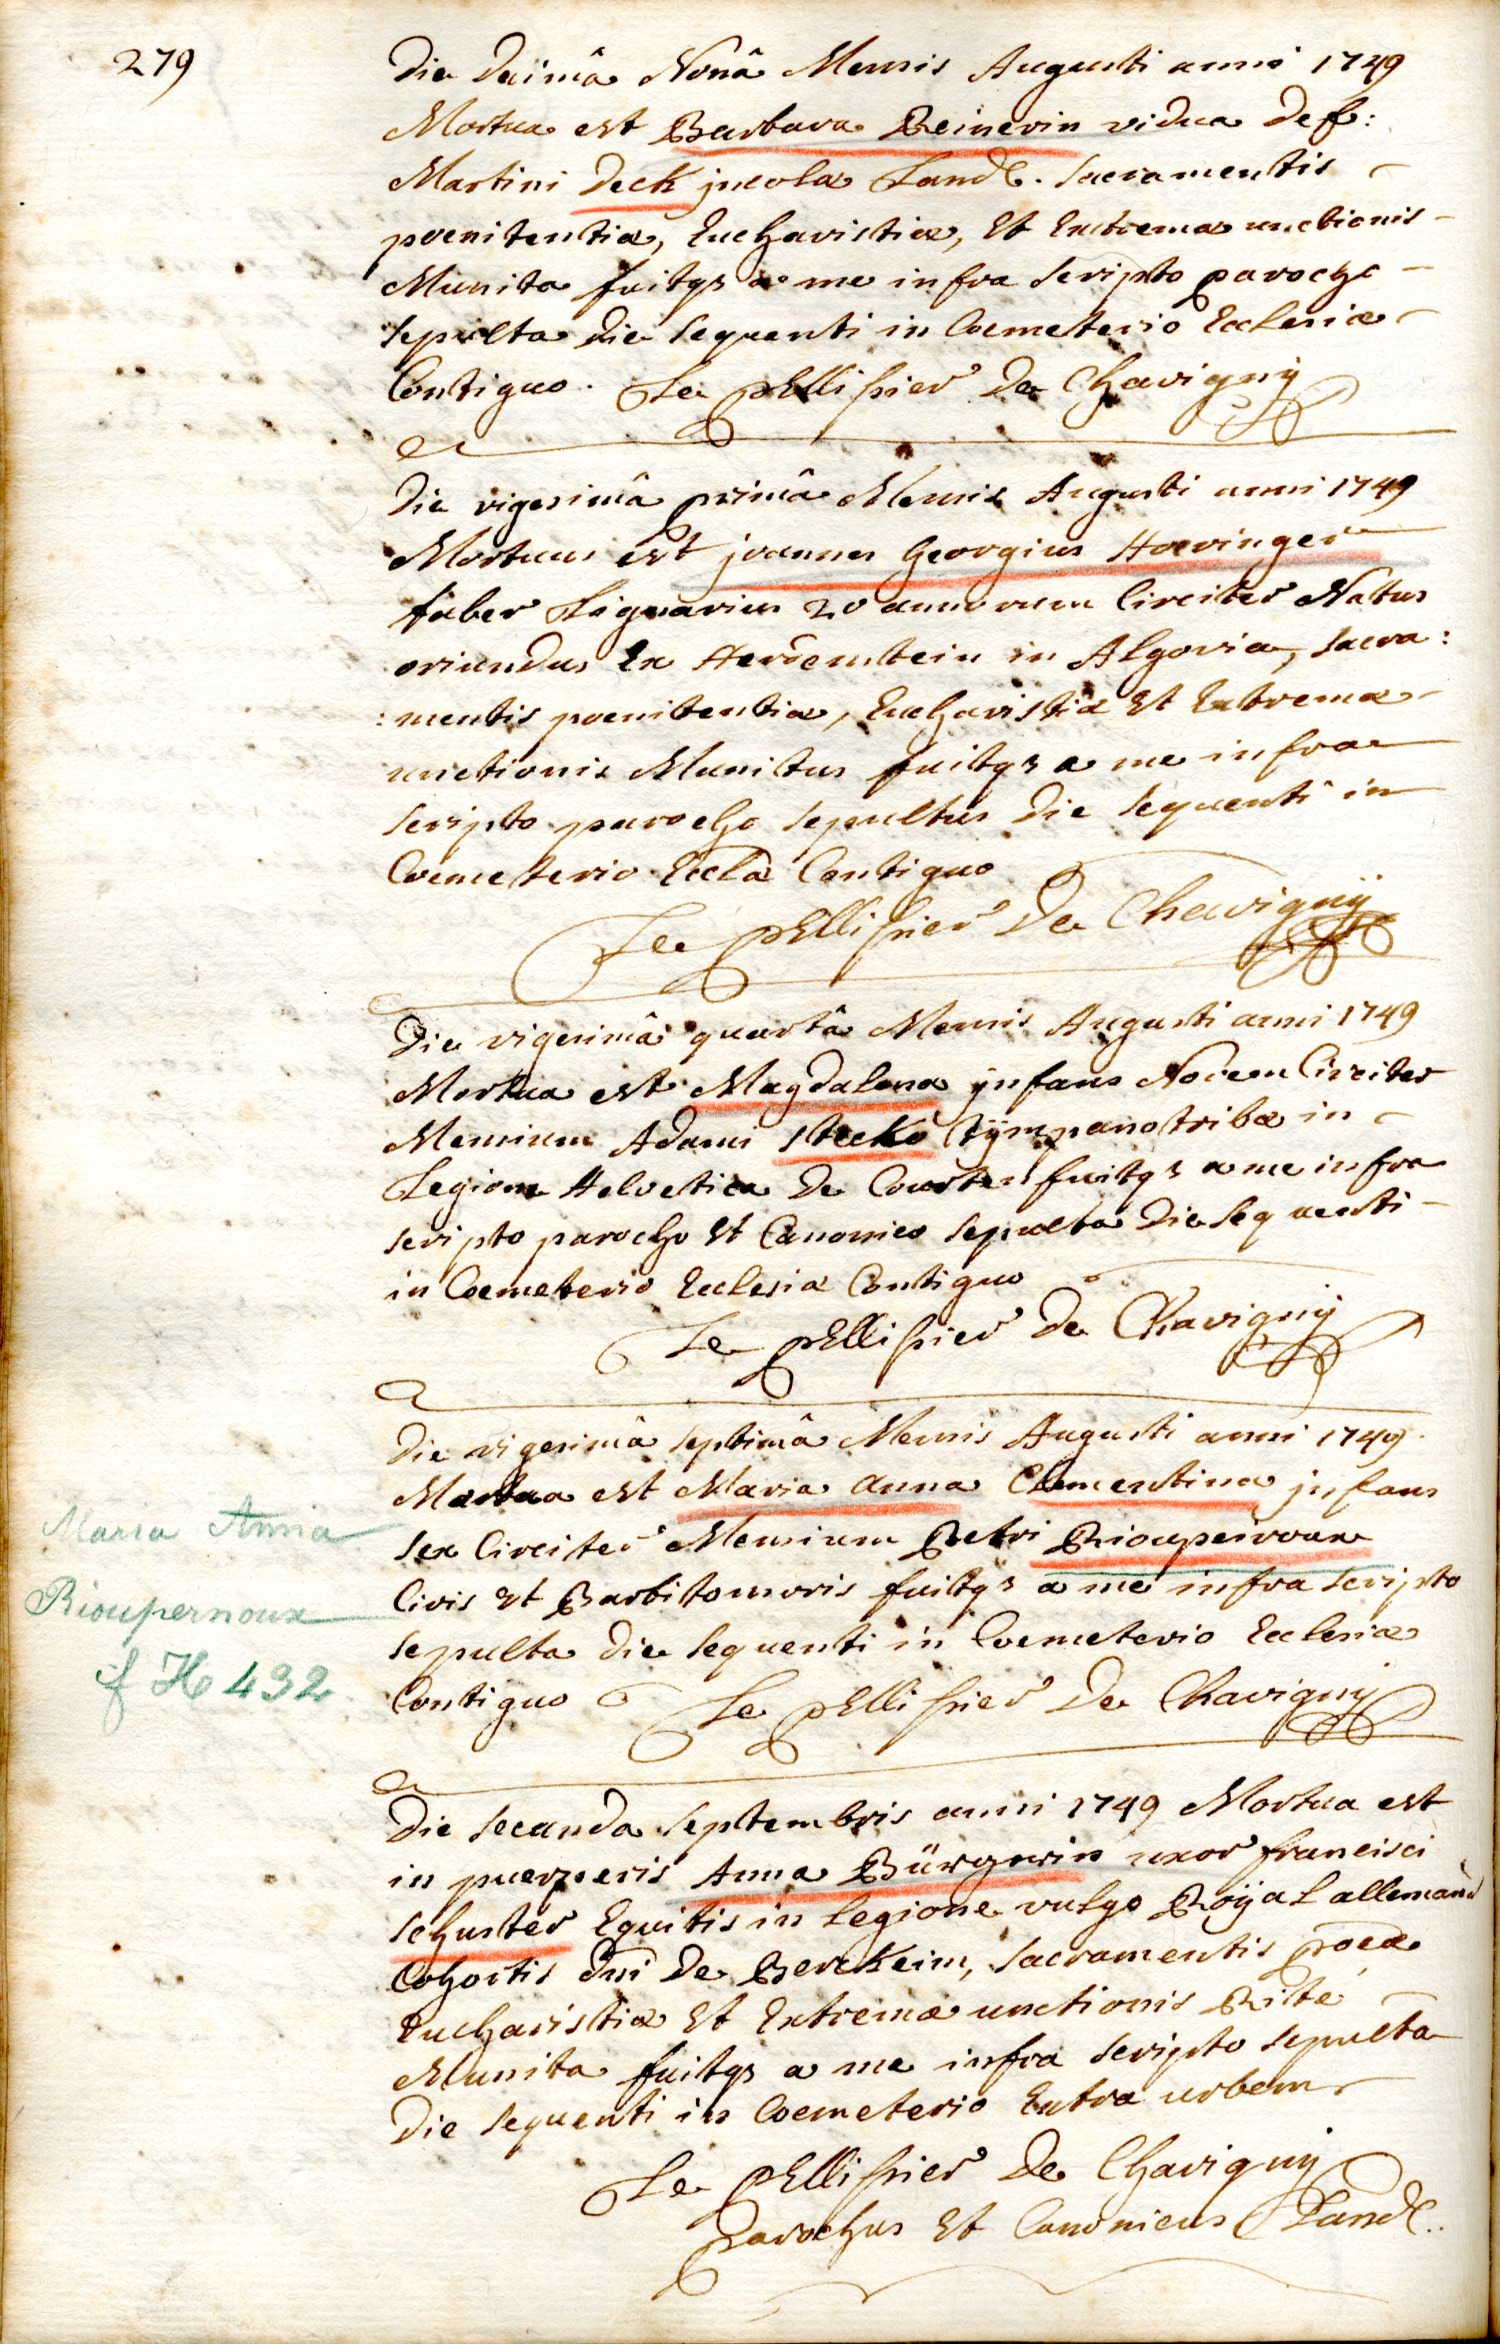 279
Die Decimâ Nonâ Mensis Augusti anni 1749
Mortua est Barbara Reinerin vidua Def:
Martini Deck jncolæ Land. Sacramentis
poenitentiæ, Eucharistiæ, Et Extremæ unctionis
Munita fuitqs a me infra scripto parocho
sepulta die sequenti in Coemeterio Ecclesiæ
Contiguo. Le pEllissier De Chavignÿ
Die vigesimâ primâ Mensis Augusti anni 1749
Mortuus est joannes Georgius Hoeringer
faber Lignarius 20 annorum Circiter Natus
oriundus Ex in Algovia, sacra:
:mentis poenitentiæ, Eucharistiæ Et Extremæ
unctionis Munitus fuitqs a me infra
scripto parocho sepultus die sequenti in
Coemeterio Ecclæ Contiguo
Le pEllissier De Chavignÿ
Die vigesimâ quartâ Mensis Augusti anni 1749
Mortua est Magdalena jnfans Novem Circiter
Mensium Adami stecko tÿmpanotribæ in
Legione Helvetica De Courten fuitqs a me infra
scripto parocho Et Canonico sepulta Die sequenti
in Coemeterio Ecclesiæ Contiguo
Le pEllissier De Chavignÿ
Die vigesimâ septimâ Mensis Augusti anni 1749.
Mortua est Maria anna Clementina jnfans
Maria Anna
sex Circiter Mensium Petri Rioupeiroux
Rioupernoux
Civis Et Barbitonsoris fuitqs a me infra scripto
sepulta die sequenti in Coemeterio Ecclesiæ
cf H 432.
Contiguo Le pEllissier De Chavignÿ
Die secunda septembris anni 1749 Mortua est
in puerperis Anna uxor francisci
schuster Equitis in legione vulgo Roÿal allemand
Cohortis dni De Berckeim, sacramentis poeæ
Eucharistiæ Et Extremæ unctionis Rite
Munita fuitqs a me infra scripto sepulta
Die sequenti in Coemeterio Extra urbem
Le pEllissier De Chavignÿ
Parochus Et Canonicus Land.